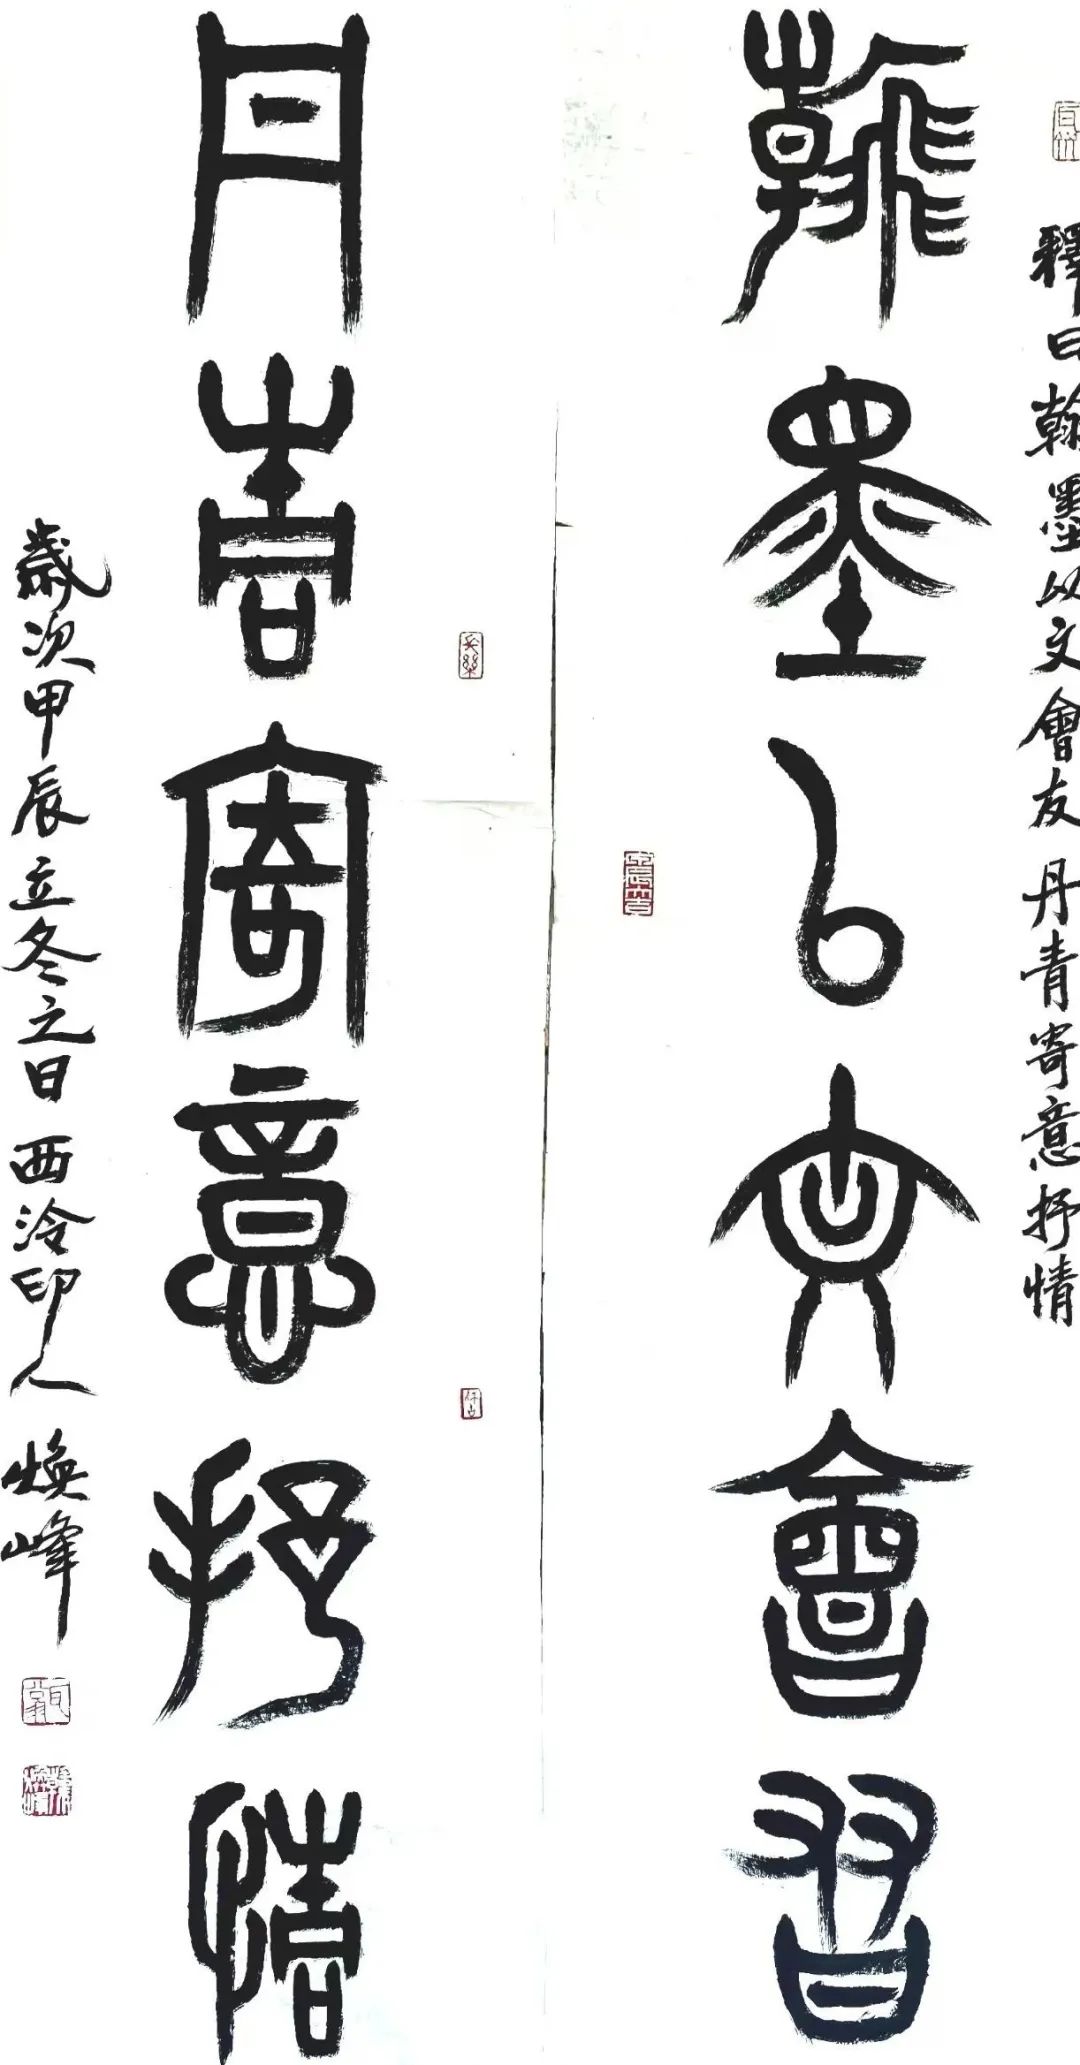 釋曰翰墨以文會友丹青寄意抒情
翰墨以文會友
丹青寄意抒情
歲次甲辰立冬之日西泠印人煥峰